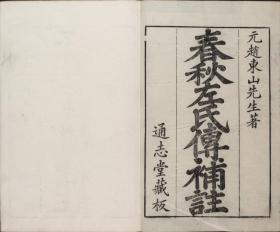 元趙東山先生著
春秋左氏傳補註
通志堂藏板